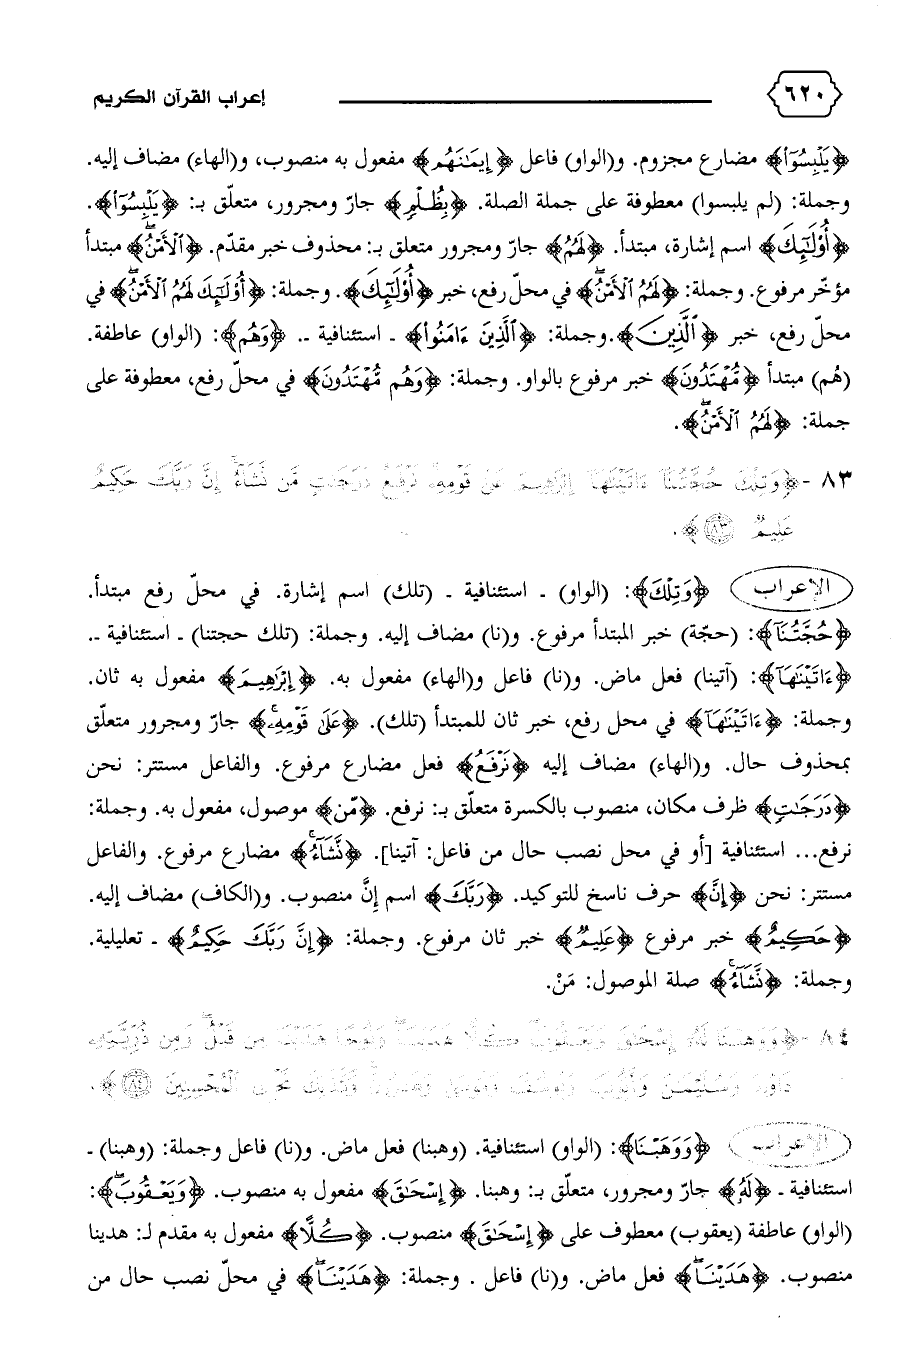 ٦٢٠ إعراب القرآن الكريم
﴿يَلْبِسُوٓا۟﴾ مضارع مجزوم. و(الواو) فاعل ﴿إِيمَـٰنَهُم﴾ مفعول به منصوب، و(الهاء) مضاف إليه.
وجملة: (لم يلبسوا) معطوفة على جملة الصلة. ﴿بِظُلْمٍ﴾ جارّ ومجرور، متعلّق بـ: ﴿يَلْبِسُوٓا۟﴾.
﴿أُو۟لَـٰٓئِكَ﴾ اسم إشارة، مبتدأ. ﴿لَهُمُ﴾ جارّ ومجرور متعلق بـ: محذوف خبر مقدّم. ﴿ٱلْأَمْنُ﴾ مبتدأ
مؤخّر مرفوع. وجملة: ﴿لَهُمُ ٱلْأَمْنُ﴾ في محلّ رفع، خبر ﴿أُو۟لَـٰٓئِكَ﴾. وجملة: ﴿أُو۟لَـٰٓئِكَ لَهُمُ ٱلْأَمْنُ﴾ في
محلّ رفع، خبر ﴿ٱلَّذِينَ﴾. وجملة: ﴿ٱلَّذِينَ ءَامَنُوا۟﴾ ـ استئنافية ـ. ﴿وَهُم﴾: (الواو) عاطفة.
(هُم) مبتدأ ﴿مُّهْتَدُونَ﴾ خبر مرفوع بالواو. وجملة: ﴿وَهُم مُّهْتَدُونَ﴾ في محلّ رفع، معطوفة على
جملة: ﴿لَهُمُ ٱلْأَمْنُ﴾.
٨٣ - ﴿وَتِلْكَ حُجَّتُنَآ ءَاتَيْنَـٰهَآ إِبْرَٰهِيمَ عَلَىٰ قَوْمِهِۦ نَرْفَعُ دَرَجَـٰتٍ مَّن نَّشَآءُ إِنَّ رَبَّكَ حَكِيمٌ
عَلِيمٌ ٨٣﴾.
الإعراب ﴿وَتِلْكَ﴾: (الواو) ـ استئنافية ـ (تلك) اسم إشارة. في محلّ رفع مبتدأ.
﴿حُجَّتُنَآ﴾: (حجّة) خبر المبتدأ مرفوع. و(نا) مضاف إليه. وجملة: (تلك حجتنا) ـ استئنافية ـ.
﴿ءَاتَيْنَـٰهَآ﴾: (آتينا) فعل ماض. و(نا) فاعل و(الهاء) مفعول به. ﴿إِبْرَٰهِيمَ﴾ مفعول به ثان.
وجملة: ﴿ءَاتَيْنَـٰهَآ﴾ في محل رفع، خبر ثان للمبتدأ (تلك). ﴿عَلَىٰ قَوْمِهِۦ﴾ جارّ ومجرور متعلّق
بمحذوف حال. و(الهاء) مضاف إليه ﴿نَرْفَعُ﴾ فعل مضارع مرفوع. والفاعل مستتر: نحن
﴿دَرَجَـٰتٍ﴾ ظرف مكان، منصوب بالكسرة متعلّق بـ: نرفع. ﴿مَّن﴾ موصول، مفعول به. وجملة:
نرفع... استئنافية [أو في محل نصب حال من فاعل: آتينا]. ﴿نَّشَآءُ﴾ مضارع مرفوع. والفاعل
مستتر: نحن ﴿إِنَّ﴾ حرف ناسخ للتوكيد. ﴿رَبَّكَ﴾ اسم إنَّ منصوب. و(الكاف) مضاف إليه.
﴿حَكِيمٌ﴾ خبر مرفوع ﴿عَلِيمٌ﴾ خبر ثان مرفوع. وجملة: ﴿إِنَّ رَبَّكَ حَكِيمٌ﴾ ـ تعليلية.
وجملة: ﴿نَّشَآءُ﴾ صلة الموصول: مَنْ.
٨٤ - ﴿وَوَهَبْنَا لَهُۥٓ إِسْحَـٰقَ وَيَعْقُوبَ كُلًّا هَدَيْنَا وَنُوحًا هَدَيْنَا مِن قَبْلُ وَمِن ذُرِّيَّتِهِۦ
دَاوُۥدَ وَسُلَيْمَـٰنَ وَأَيُّوبَ وَيُوسُفَ وَمُوسَىٰ وَهَـٰرُونَ وَكَذَٰلِكَ نَجْزِى ٱلْمُحْسِنِينَ ٨٤﴾.
الإعراب ﴿وَوَهَبْنَا﴾: (الواو) استئنافية. (وهبنا) فعل ماض. و(نا) فاعل وجملة: (وهبنا) ـ
استئنافية ـ ﴿لَهُۥٓ﴾ جارّ ومجرور، متعلّق بـ: وهبنا. ﴿إِسْحَـٰقَ﴾ مفعول به منصوب. ﴿وَيَعْقُوبَ﴾:
(الواو) عاطفة (يعقوب) معطوف على ﴿إِسْحَـٰقَ﴾ منصوب. ﴿كُلًّا﴾ مفعول به مقدم لـ: هدينا
منصوب. ﴿هَدَيْنَا﴾ فعل ماض. و(نا) فاعل . وجملة: ﴿هَدَيْنَا﴾ في محلّ نصب حال من